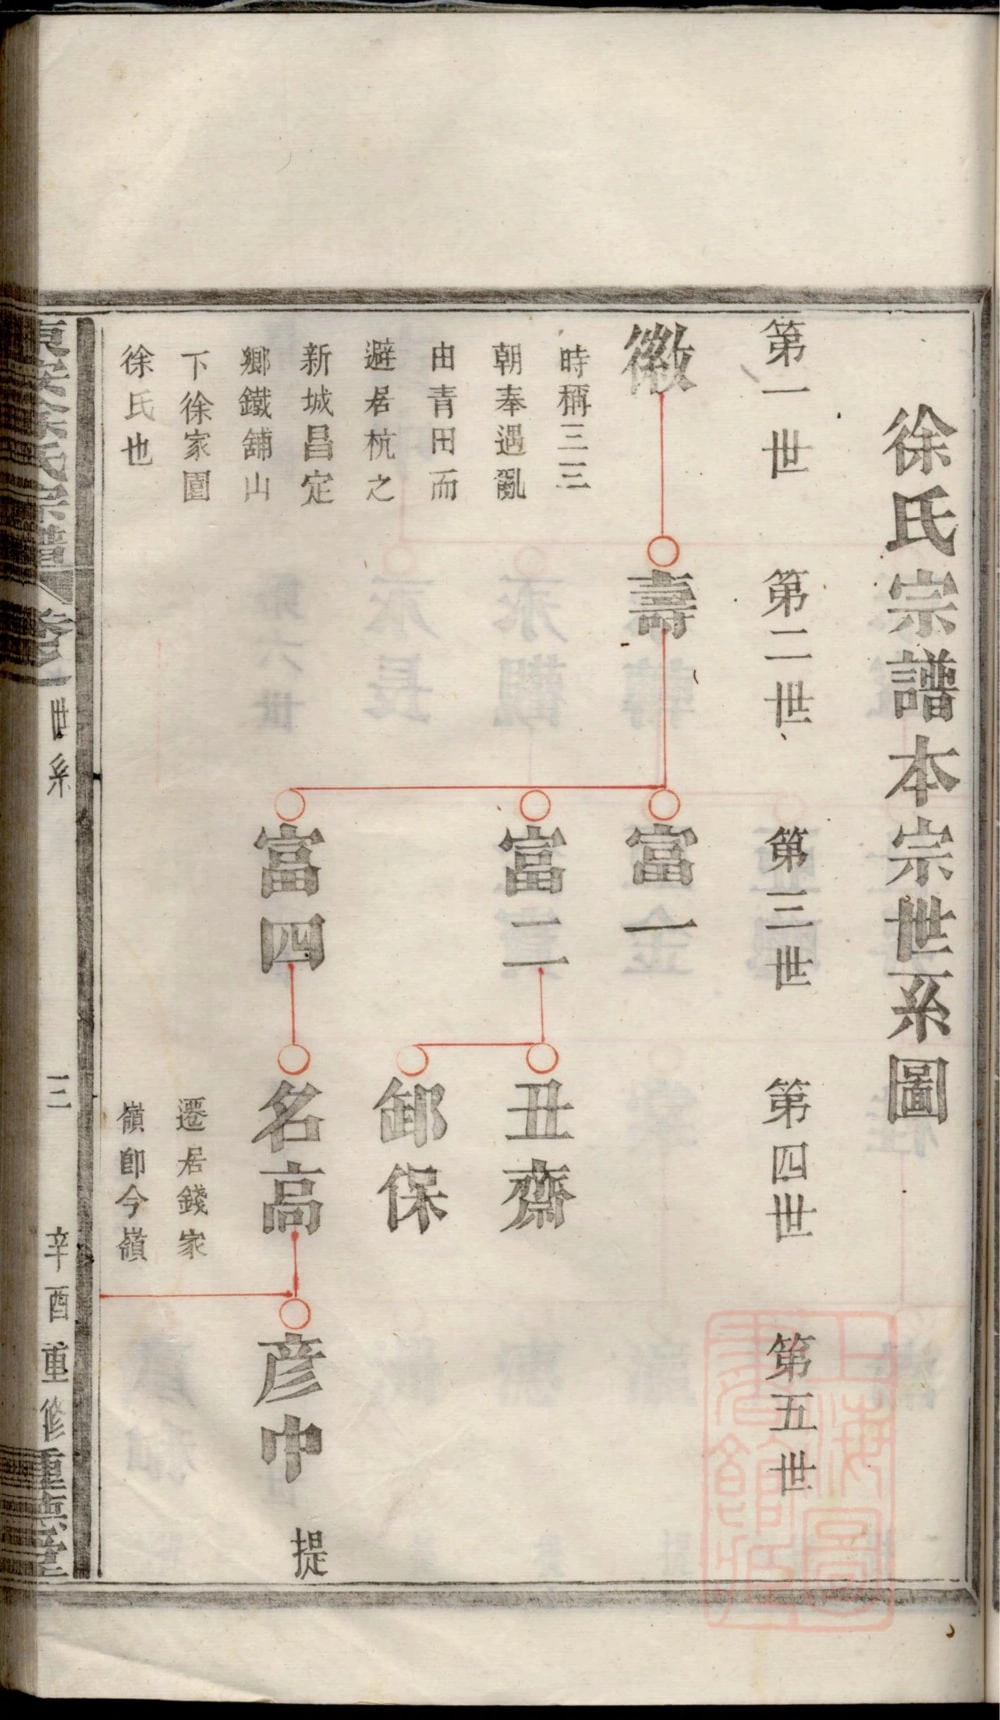 徐氏宗譜本宗世系圖
第一世
第二世
第三世
第四世
第五世
徽
壽
富一
時稱三三
朝奉遇亂
由青田而
避居杭之
新城昌定
鄉鐵舖山
下徐家園
徐氏也
富二
丑齋
卸保
富四
名高
遷居錢家
嶺即今嶺
彦中
提
東安徐氏宗譜
世系
三
辛酉重修
重德堂
上海圖書館藏